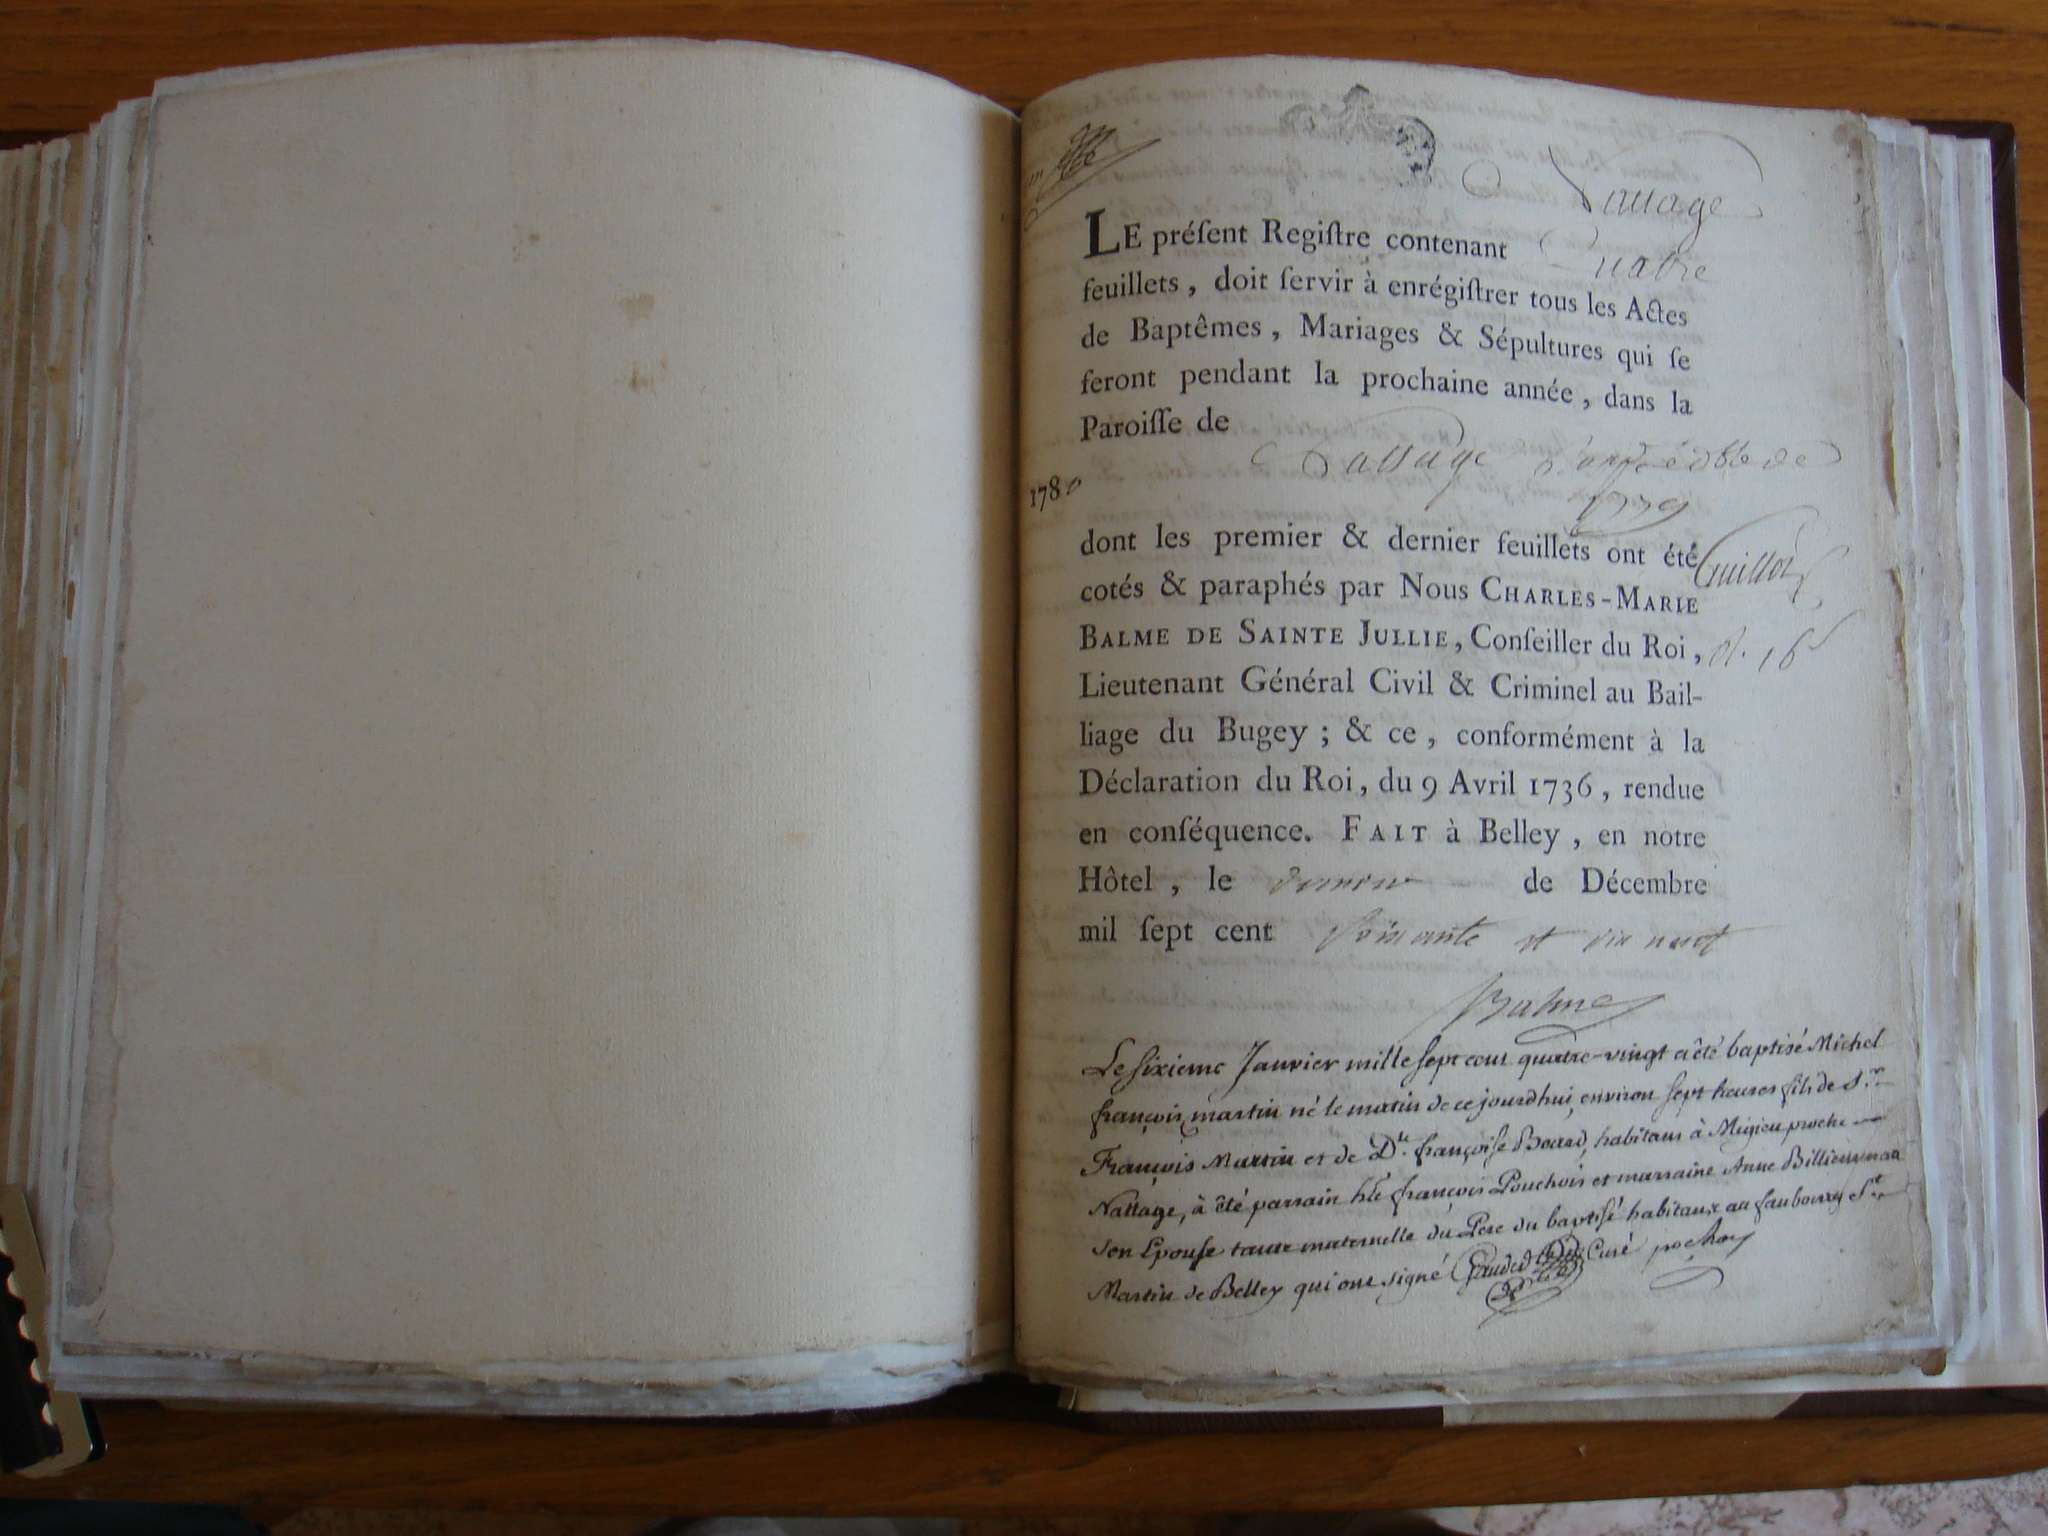 Nattage
LE préſent Regiſtre contenant Quatre
feuillets, doit ſervir à enrégiſtrer tous les Actes
de Baptêmes, Mariages & Sépultures qui ſe
feront pendant la prochaine année, dans la
Paroiſſe de Nattage
1780
dont les premier & dernier feuillets ont été
cotés & paraphés par Nous CHARLES-MARIE
BALME DE SAINTE JULLIE, Conſeiller du Roi,
Lieutenant Général Civil & Criminel au Bail-
liage du Bugey; & ce, conformément à la
Déclaration du Roi, du 9 Avril 1736, rendue
en conſéquence. FAIT à Belley, en notre
Hôtel, le de Décembre
mil ſept cent soixante et dix neuf
Balme
Le sixieme Janvier mille sept cent quatre-vingt a été baptisé Michel
françois martin né le matin de ce jourdhui, environ sept heures fils de S.r
François Martin et de D.le françoise Borrd, habitans à Migieu proche
Nattage, à été parrain françois Pouchois et marraine Anne Billieux
son Epouse tante maternelle du Pere du baptisé habitans au faubourg S.t
Martin de Belley qui ont signé Curé pochoy